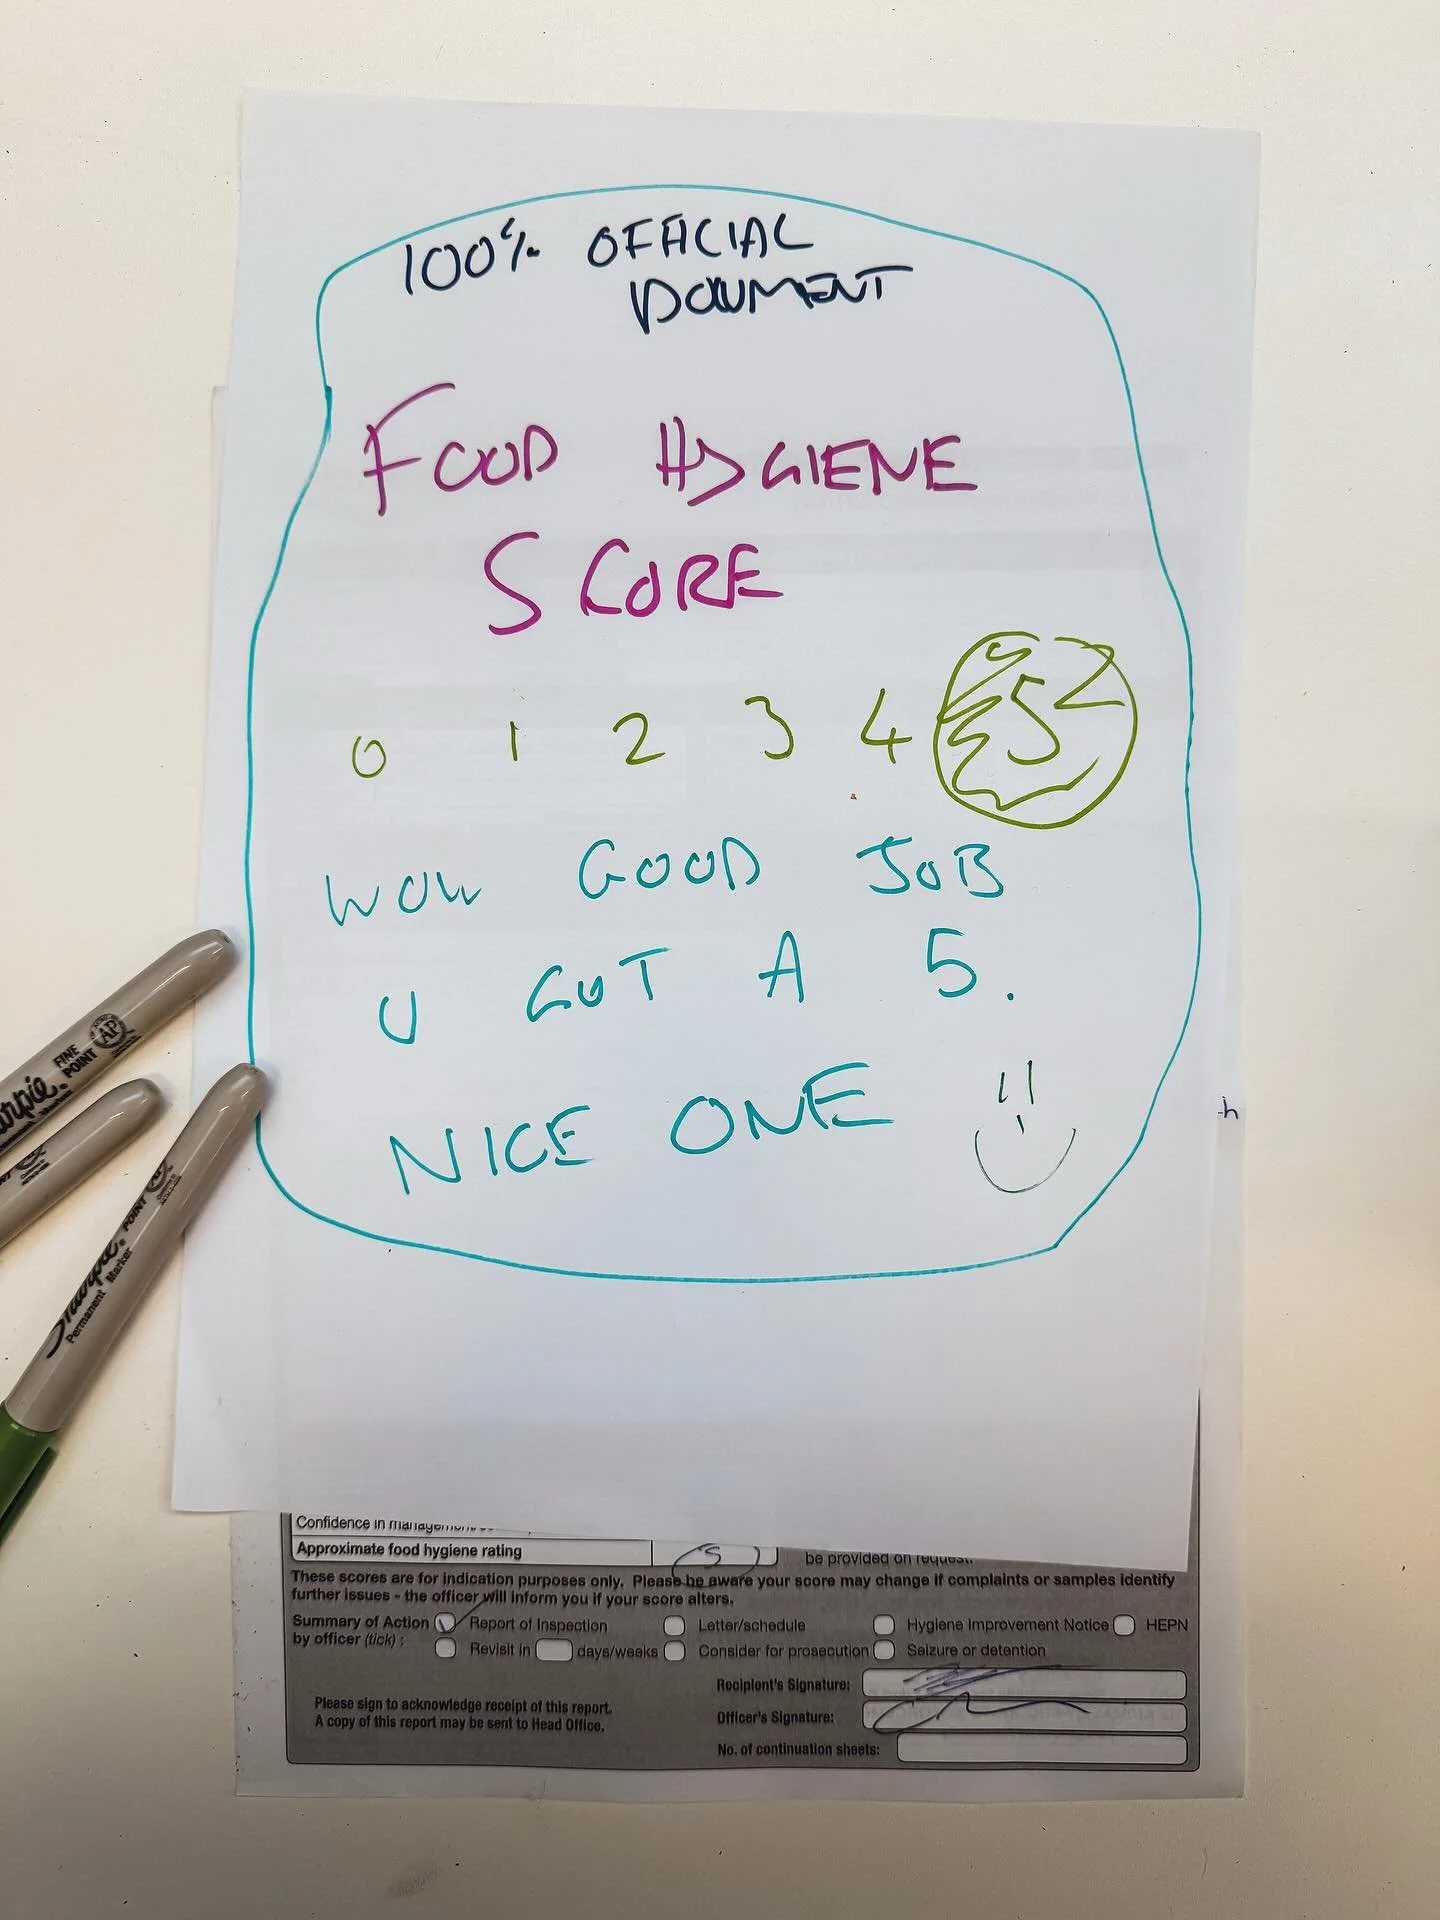 100% OFFICIAL
DOCUMENT
FOOD HYGIENE
SCORE
0 1 2 3 4 5
WOW GOOD JOB
U GOT A 5.
NICE ONE
Sharpie
FINE POINT
AP
Sharpie
Permanent Marker
POINT
Confidence in
Approximate food hygiene rating 5
be provided on request.
These scores are for indication purposes only. Please be aware your score may change if complaints or samples identify
further issues - the officer will inform you if your score alters.
Summary of Action Report of Inspection Letter/schedule Hygiene Improvement Notice HEPN
by officer (tick): Revisit in days/weeks Consider for prosecution Seizure or detention
Recipient's Signature:
Please sign to acknowledge receipt of this report.
Officer's Signature:
A copy of this report may be sent to Head Office.
No. of continuation sheets: